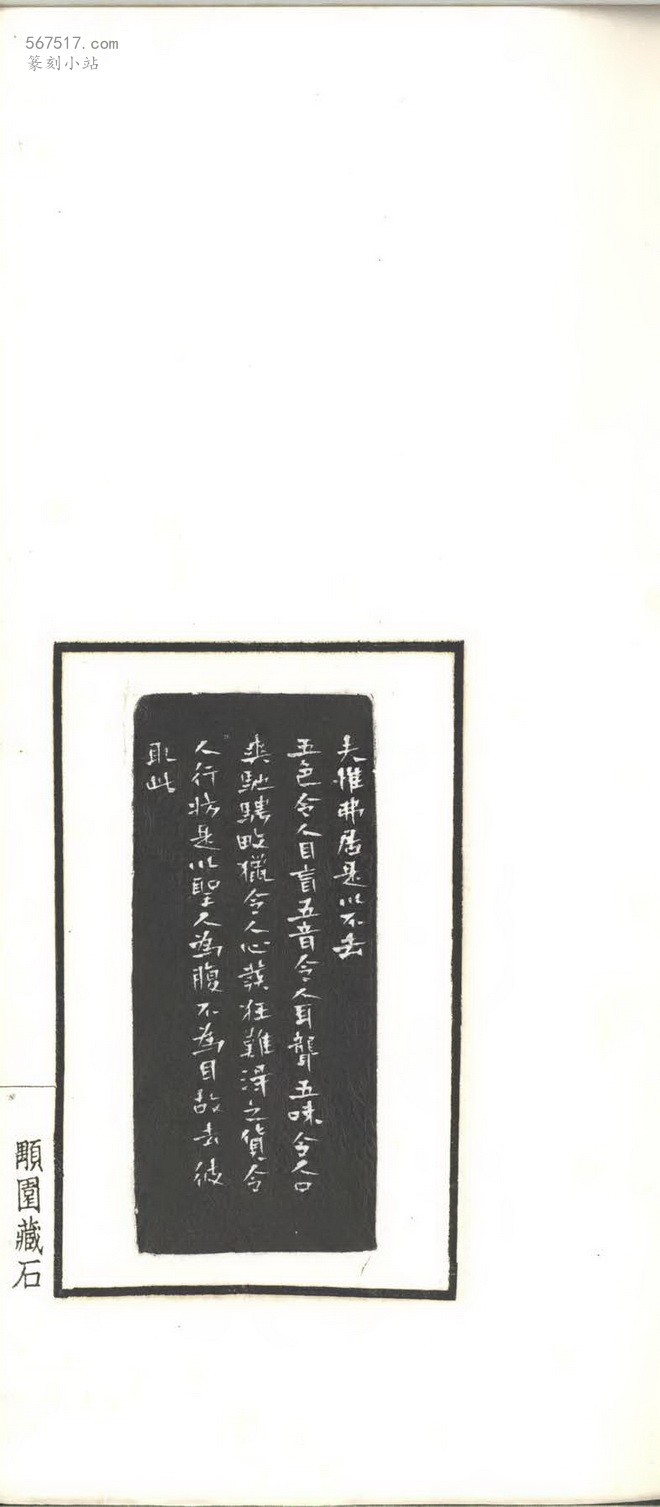 567517.com
篆刻小站
夫惟弗居是以不去
五色令人目盲五音令人耳聾五味令人口
爽馳騁畋獵令人心發狂難得之貨令
人行妨是以聖人為腹不為目故去彼
取此
顒園藏石